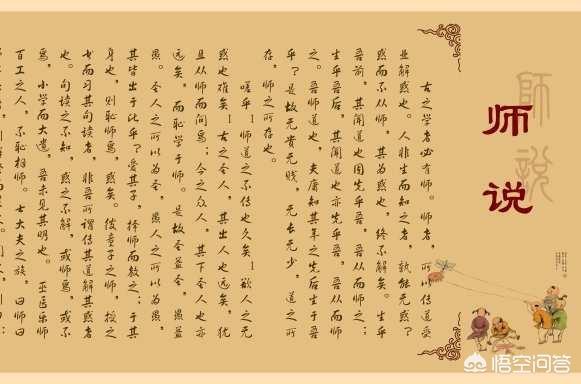 师说
師説
古之学者必有师。师者，所以传道受
业解惑也。人非生而知之者，孰能无惑？
惑而不从师，其为惑也，终不解矣。生乎
吾前，其闻道也固先乎吾，吾从而师之；
生乎吾后，其闻道也亦先乎吾，吾从而师
之。吾师道也，夫庸知其年之先后生于吾
乎？是故无贵无贱，无长无少，道之所
存，师之所存也。
嗟乎！师道之不传也久矣！欲人之无
惑也难矣！古之圣人，其出人也远矣，犹
且从师而问焉；今之众人，其下圣人也亦
远矣，而耻学于师。是故圣益圣，愚益
愚。圣人之所以为圣，愚人之所以为愚，
其皆出于此乎？爱其子，择师而教之；于其
身也，则耻师焉，惑矣。彼童子之师，授之
书而习其句读者，非吾所谓传其道解其惑者
也。句读之不知，惑之不解，或师焉，或不
焉，小学而大遗，吾未见其明也。巫医乐师
百工之人，不耻相师。士大夫之族，曰师曰
悟空问答